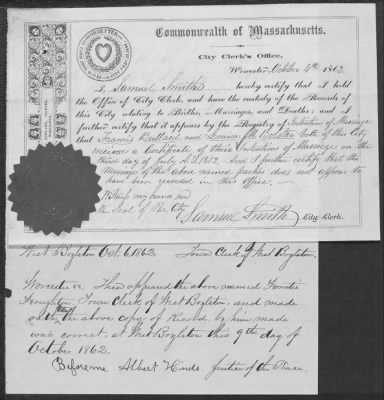 Commonwealth of Massachusetts.
City Clerk's Office,
Worcester, October 4th 1862
I, Samuel Smith hereby certify that I hold
the Office of City Clerk, and have the custody of the Records of
this City relating to Births, Marriages, and Deaths; and I
further certify that it appears by the Registry of Intention of Marriage
that Francis Bullard and Louisa M. both of this City
received a Certificate of their Intention of Marriage on the
third day of July A.D. 1852. And I further certify that the
Marriage of the above named parties does not appear to
have been recorded in this Office.
Witness my hand and
the Seal of the City
Samuel Smith City Clerk.
West Boylston Oct. 6, 1862. Town Clerk of West Boylston,
Worcester ss. Then appeared the above named
Town Clerk of West Boylston, and made
oath that the above copy of Record by him made
was correct, at West Boylston this 9th day of
October 1862.
Before me Albert Hinds Justice of the Peace.